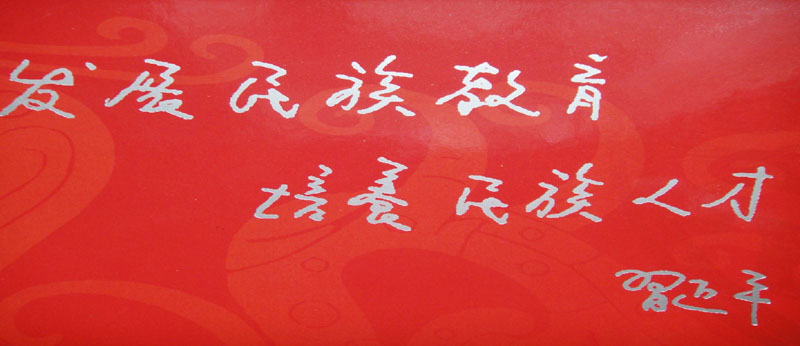 发展民族教育
培養民族人才
習近平